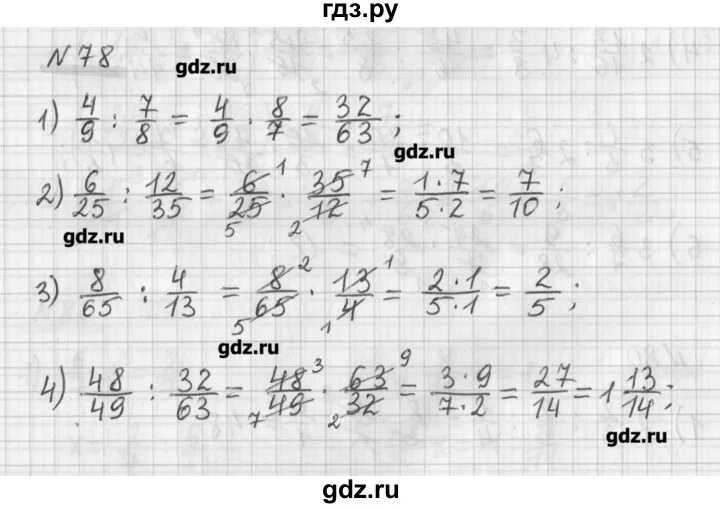 гдз.ру
N 78
gdz.ru
1) 4/9 : 7/8 = 4/9 · 8/7 = 32/63 ;
gdz.ru
2) 6/25 : 12/35 = 6/25 · 35/12 = 1·7/5·2 = 7/10 ;
1 7
5 2
gdz.ru
3) 8/65 : 4/13 = 8/65 · 13/4 = 2·1/5·1 = 2/5 ;
2 1
5 1
gdz.ru
4) 48/49 : 32/63 = 48/49 · 63/32 = 3·9/7·2 = 27/14 = 1 13/14 ;
3 9
7 2
gdz.ru
gdz.ru